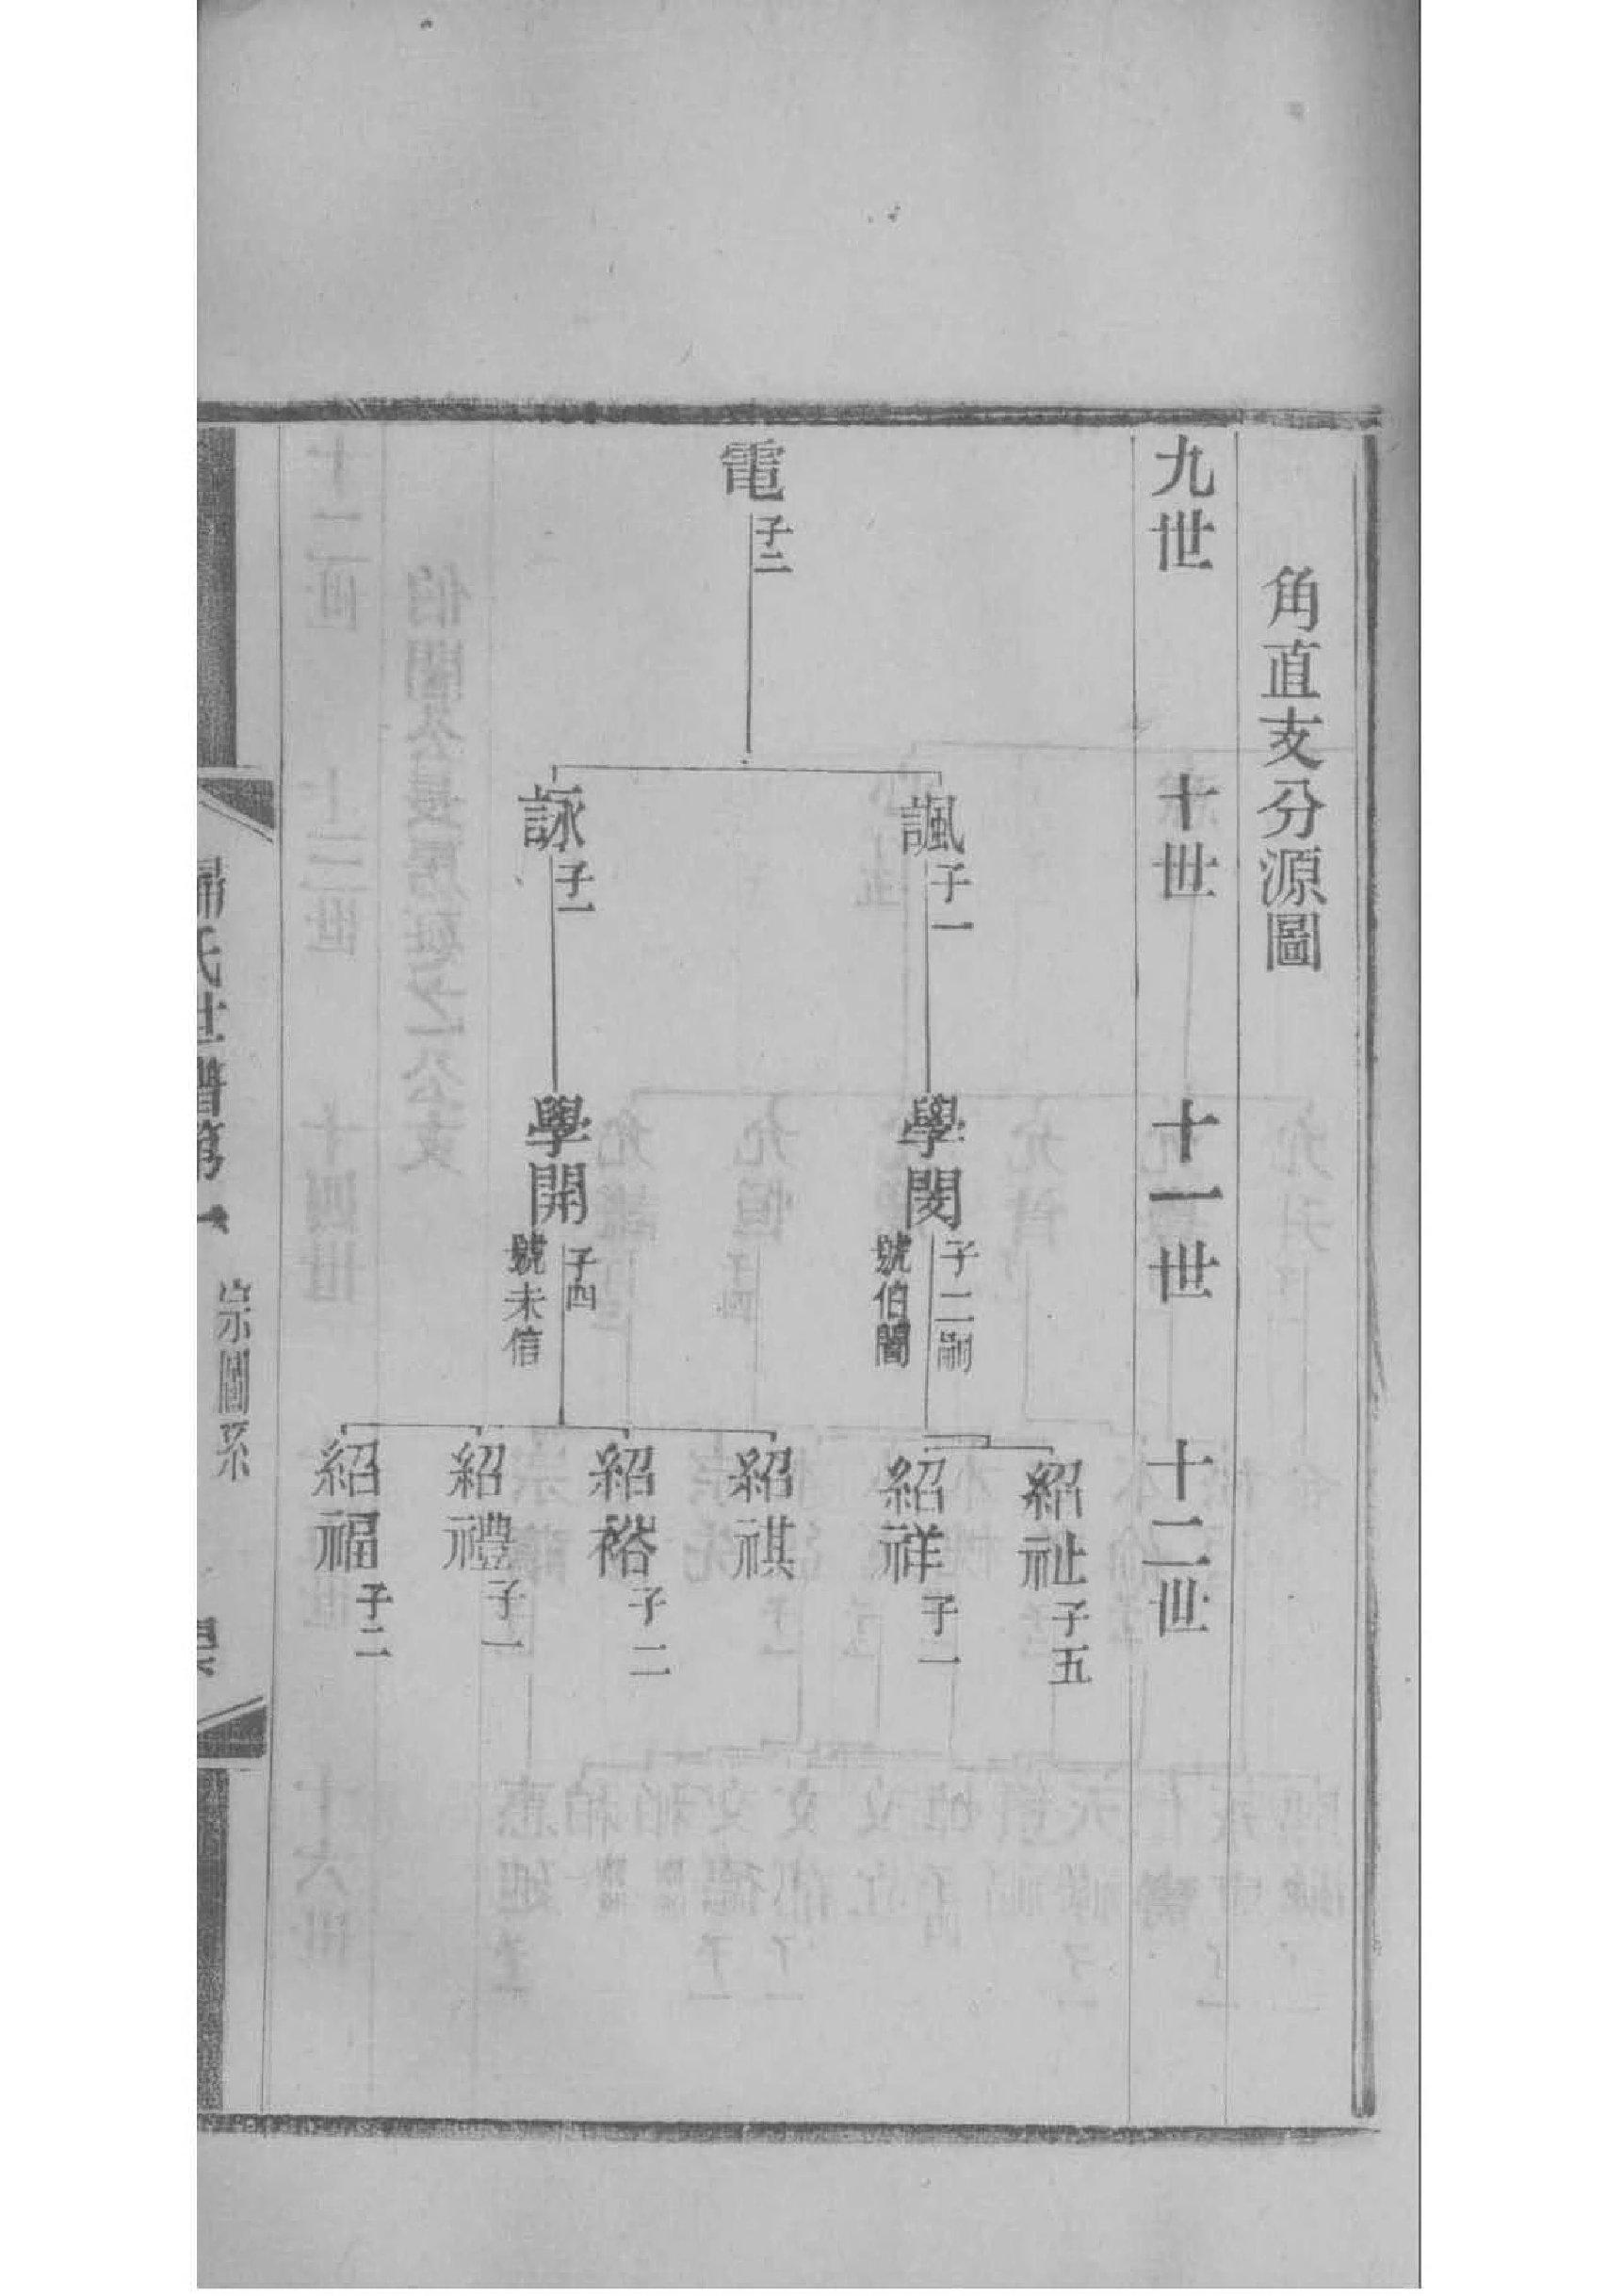 角直支分源圖
九世
十世
十一世
十二世
電 子二
諷 子一
詠 子一
學閔 子二嗣 號伯闇
學開 子四 號未信
紹祉 子五
紹祥 子一
紹祺
紹裕 子二
紹禮 子一
紹福 子二
歸氏世譜第一
宗圖系